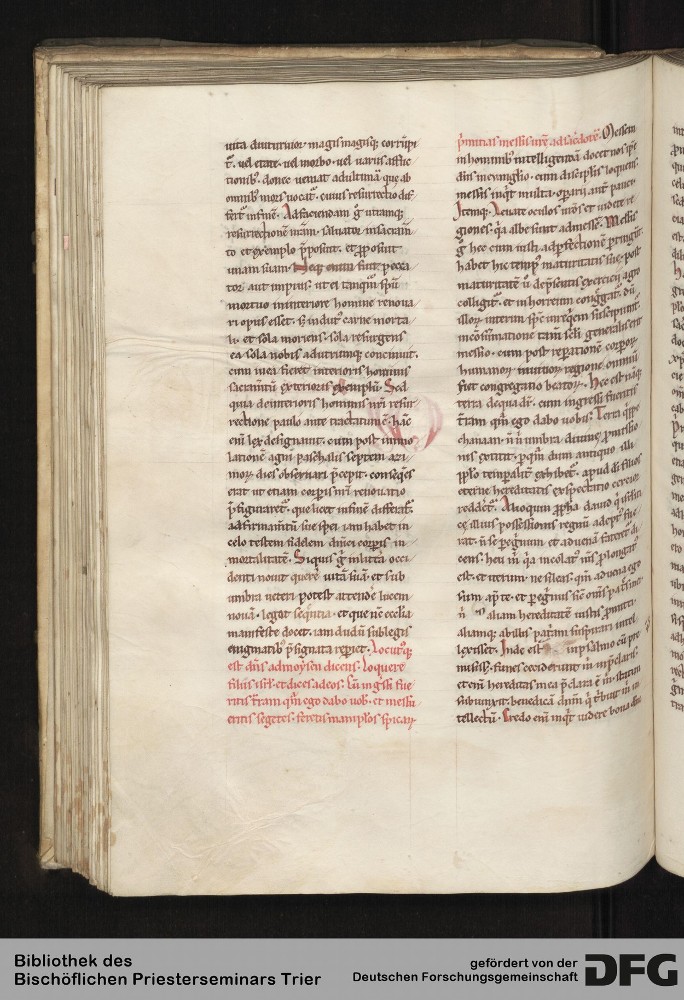 uita diuturnior magis magisq; corrupi
t᷑. uel etate. uel morbo. uel uariis afflic
tionib;. donec ueniat ad ultimā que ab
omnib; mors uocat᷑. cuius resurrectio dif
fert᷑ in finē. Ad faciendam g̊ utramq;
resurrectionē nr̄am. saluator in sacram̄
to et exemplo
unam suam. Neq; enim fuit pecca
tor aut impius. ut ei tanquā sp̄u
mortuo in interiore homine renoua
ri opus esset. s; indut᷒ carne morta
li. et sola moriens. sola resurgens
ea sola nobis ad utrunq; concinuit.
cum in ea fieret interioris hominis
sacram̄tū exterioris exemplū. Sed
quia de interioris hominis nr̄i resur
rectione paulo ante tractatum ē. hāc
enī lex designauit. cum post immo
lationē agni paschalis septem azi
morū dies obseruari p̄cepit. conseq̄ns
erat ut etiam corporis nr̄i renouatio
p̄figuraret᷑. que licet in finē differat᷑.
ad firmam̄tū sue spei iam habet in
celo testem fidelem dn̄ici corporis in
mortalitatē. Siquis g̊ in litt̄a occi
denti nouit querē uitā suā. et sub
umbra ueteri potest attendē lucem
nouā. legat seq̄ntia. et que nc̄ eccl̄ia
manifeste docet. iam dudū sub legis
enigmatib; p̄signata repperiet. Locutusq;
est dn̄s ad moysen dicens. Loquere
filiis isrl̄. et dices ad eos. Cū ing̊ssi fue
ritis t̄ram quā ego dabo uob̄. et messū
eritis segetes. feretis manipl̄os spicarꝝ
p̄mitias messis ur̄ę ad sac̄dotē. Messem
in hominib; intelligentiā docet nos ip̄se
dn̄s in euanglio. cum discipl̄is loquens.
messis inqt multa. operarii aut̄ pauci.
Itemq;. Leuate oculos ur̄os et uidete re
giones. q̄a albe sunt ad messē. Messis
g̊ hec cum iusti ad p̄fectionē
habet hic temp᷒ maturitatis sue. post
maturitatē ū de p̄sentis exercicii agro
colligit᷑. et in horreum cong̊gat᷑. dū
illorꝝ interim sp̄c in requiem suscipiunt᷑.
in cōsūmatione tam̄ scl̄i generalis erit
messio. cum post reparationē corporꝝ
humanorꝝ in uiuorꝝ regione omniū
fiet congregatio beatorꝝ. Hec est nāq;
terra de qua dr̄. cum ingressi fueritis
t̄ram quā ego dabo uobis. Terra
chanaan. n̄ n̄ umbra diuine promissio
nis extitit. p quā dum antiquo illi
pp̄lo temporalit̄ exhibet᷑. apud di filios
eterne hereditatis exspectatio certior
reddit᷑. Alioquin
ce illius possessionis regnū adept᷒ fue
rat. n̄ se peregrinum et aduenā fateret᷑ di
cens. heu m̄ q̄a incolat᷒ m̄s plongat᷒
est. et iterum. ne sileas. qm̄ aduena ego
sum apud te. et peregrinus sic̄ om̄s patres mei.
n̄ aliam hereditatē iustis promitti.
aliamq; ab illis patriam suspirari intel
lexisset. Inde est in psalmo cū pre
misisset. funes ceciderunt m̄ in p̄claris.
et enī hereditas mea p̄clara ē m̄. statim
subiunxit. benedicā dnm̄ q̄ tribuit m̄ in
tellectū. Credo enī inq̄t uidere bona dn̄i
Bibliothek des
Bischöflichen Priesterseminars Trier
gefördert von der
Deutschen Forschungsgemeinschaft
DFG